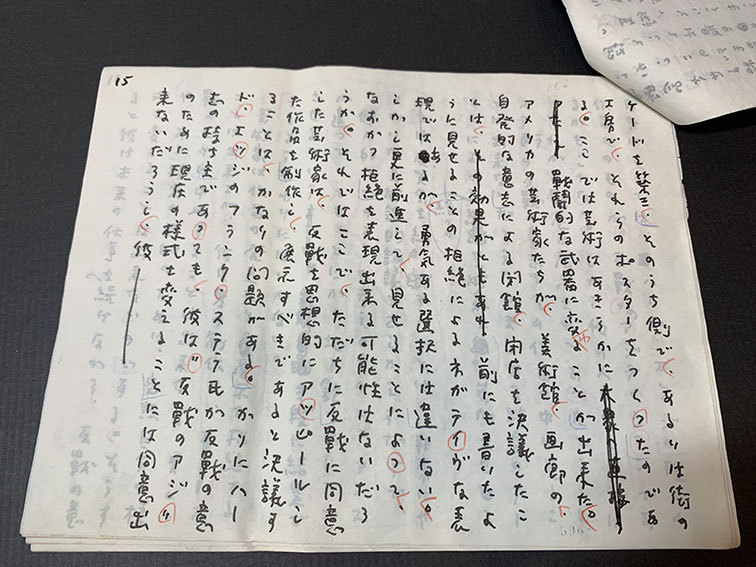 15
ケードを築き、そのうち側で、あるいは街の
工房で、それらのポスターをつくったのであ
る。ここでは芸術はあきらかに
戦闘的な武器に変ることが出来た。
アメリカの芸術家たちが、美術館、画廊の、
自発的な意志による閉館、閉店を決議したこ
とは、その効果がともあれ 前にも書いたよ
うに見せることの拒絶によるネガティヴな表
現ではあるが、勇気ある選択には違いない。
しかし更に前進して、見せることによって、
なおかつ拒絶を表現出来る可能性はないだろ
うか。それではここで、ただちに反戦に同意
した芸術家は、反戦を思想的にアッピールし
た作品を制作し、展示すべきであると決議す
ることは、かなりの問題がある。かりにハー
ド・エッジのフランク・ステラ氏が反戦の意
志の持ち主であっても、彼は"反戦のアジ"
のために現在の様式を変えることには同意出
来ないだろうし、彼